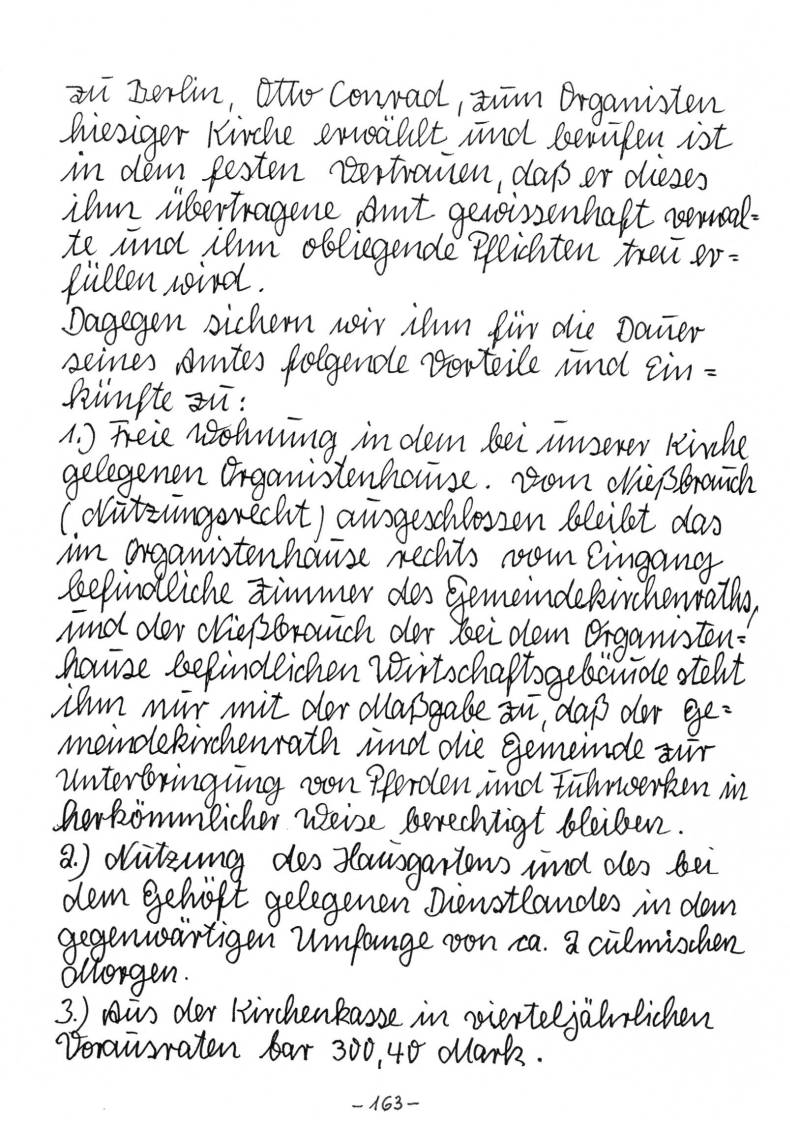 zu Berlin, Otto Conrad, zum Organisten
hiesiger Kirche erwählt und berufen ist
in dem festen Vertrauen, daß er dieses
ihm übertragene Amt gewissenhaft verwal=
te und ihm obliegende Pflichten treu er=
füllen wird.
Dagegen sichern wir ihm für die Dauer
seines Amtes folgende Vorteile und Ein=
künfte zu:
1.) Freie Wohnung in dem bei unserer Kirche
gelegenen Organistenhause. Vom Nießbrauch
(Nutzungsrecht) ausgeschlossen bleibt das
im Organistenhause rechts vom Eingang
befindliche Zimmer des Gemeindekirchenraths,
und der Nießbrauch der bei dem Organisten=
hause befindlichen Wirtschaftsgebäude steht
ihm nur mit der Maßgabe zu, daß der Ge=
meindekirchenrath und die Gemeinde zur
Unterbringung von Pferden und Fuhrwerken in
herkömmlicher Weise berechtigt bleiben.
2.) Nutzung des Hausgartens und des bei
dem Gehöft gelegenen Dienstlandes in dem
gegenwärtigen Umfange von ca. 2 culmischen
Morgen.
3.) Aus der Kirchenkasse in vierteljährlichen
Vorausraten bar 300,40 Mark.
-163-